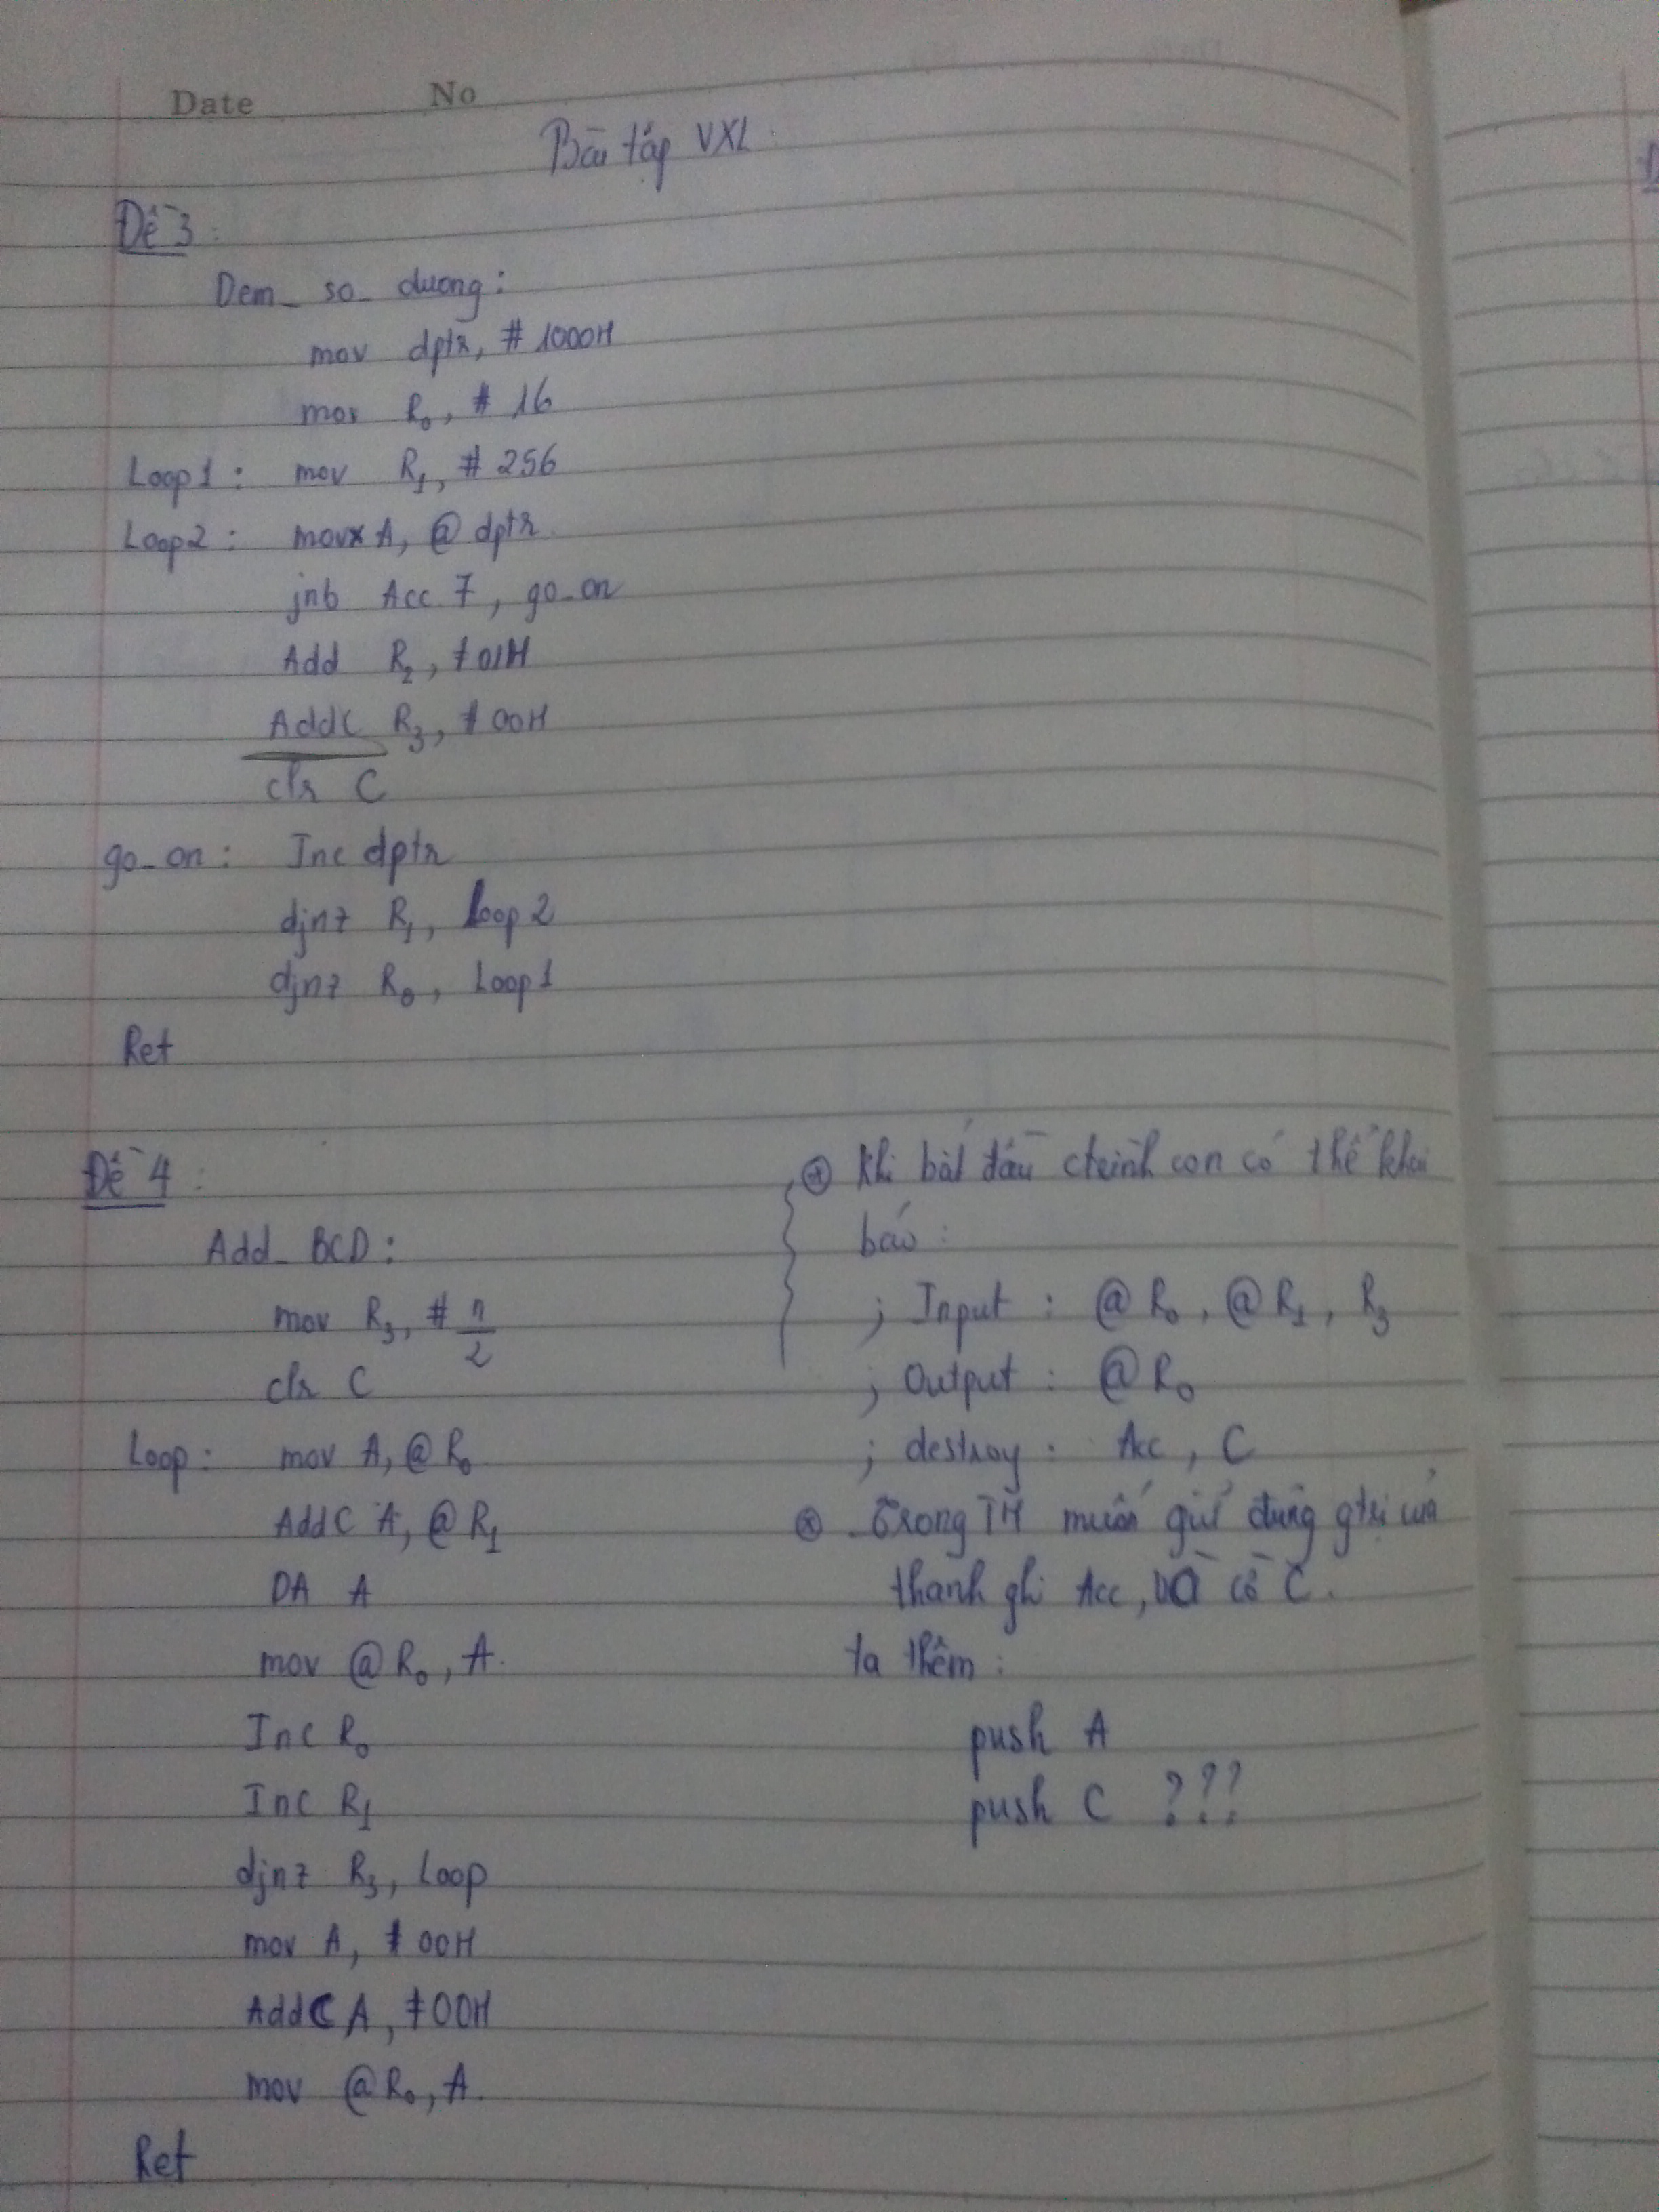 Date No
Bài tập VXL
Đề 3:
Dem_so_duong:
mov dptr, #1000H
mov R0, #16
Loop1: mov R1, #256
Loop2: movx A, @dptr
jnb Acc.7, go_on
Add R2, #01H
Addc R3, #00H
clr C
go_on: Inc dptr
djnz R1, Loop2
djnz R0, Loop1
Ret
Đề 4:
Add_BCD:
mov R3, # n/2
clr C
Loop: mov A, @R0
AddC A, @R1
DA A
mov @R0, A.
Inc R0
Inc R1
djnz R3, Loop
mov A, #00H
AddC A, #00H
mov @R0, A.
Ret
⊛ Khi bắt đầu ctrình con có thể khai
báo:
; Input: @R0, @R1, R3
; Output: @R0
; destroy: Acc, C
⊛ Trong TH muốn giữ đúng gtrị của
thanh ghi Acc, và cờ C.
ta thêm:
push A
push C ???